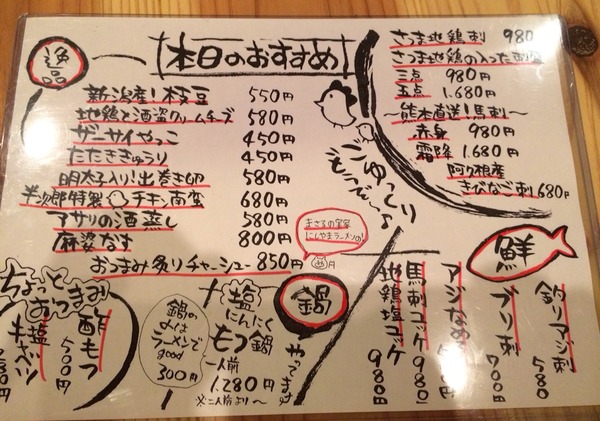 逸品
本日のおすすめ
新潟産!枝豆 550円
地鶏と酒盗クリームチーズ 580円
ザーサイやっこ 450円
たたききゅうり 450円
明太子入り!出巻き卵 580円
半次郎特製 チキン南蛮 680円
アサリの酒蒸し 580円
麻婆なす 800円
おつまみ炙りチャーシュー 850円
ごゆっくり
もっぞ〜う
さつま地鶏刺 980
さつま地鶏の入った刺盛
三点 980円
五点 1.680円
〜熊本直送!馬刺〜
赤身 980円
霜降 1.680円
阿久根産
きびなご刺 680円
鮮
釣りアジ刺 580
ブリ刺 700
アジなめ 580
馬刺コッケ 980
地鶏塩コッケ 980
まさるの実家
にしやまラーメンの!
鍋
やってます
塩
にんにく
もつ鍋
一人前
1.280円
※二人前より〜
鍋の
〆は
ラーメンで
good
300円
ちょっと
おつまみ
酢もつ
500円
塩
キャベツ
380円